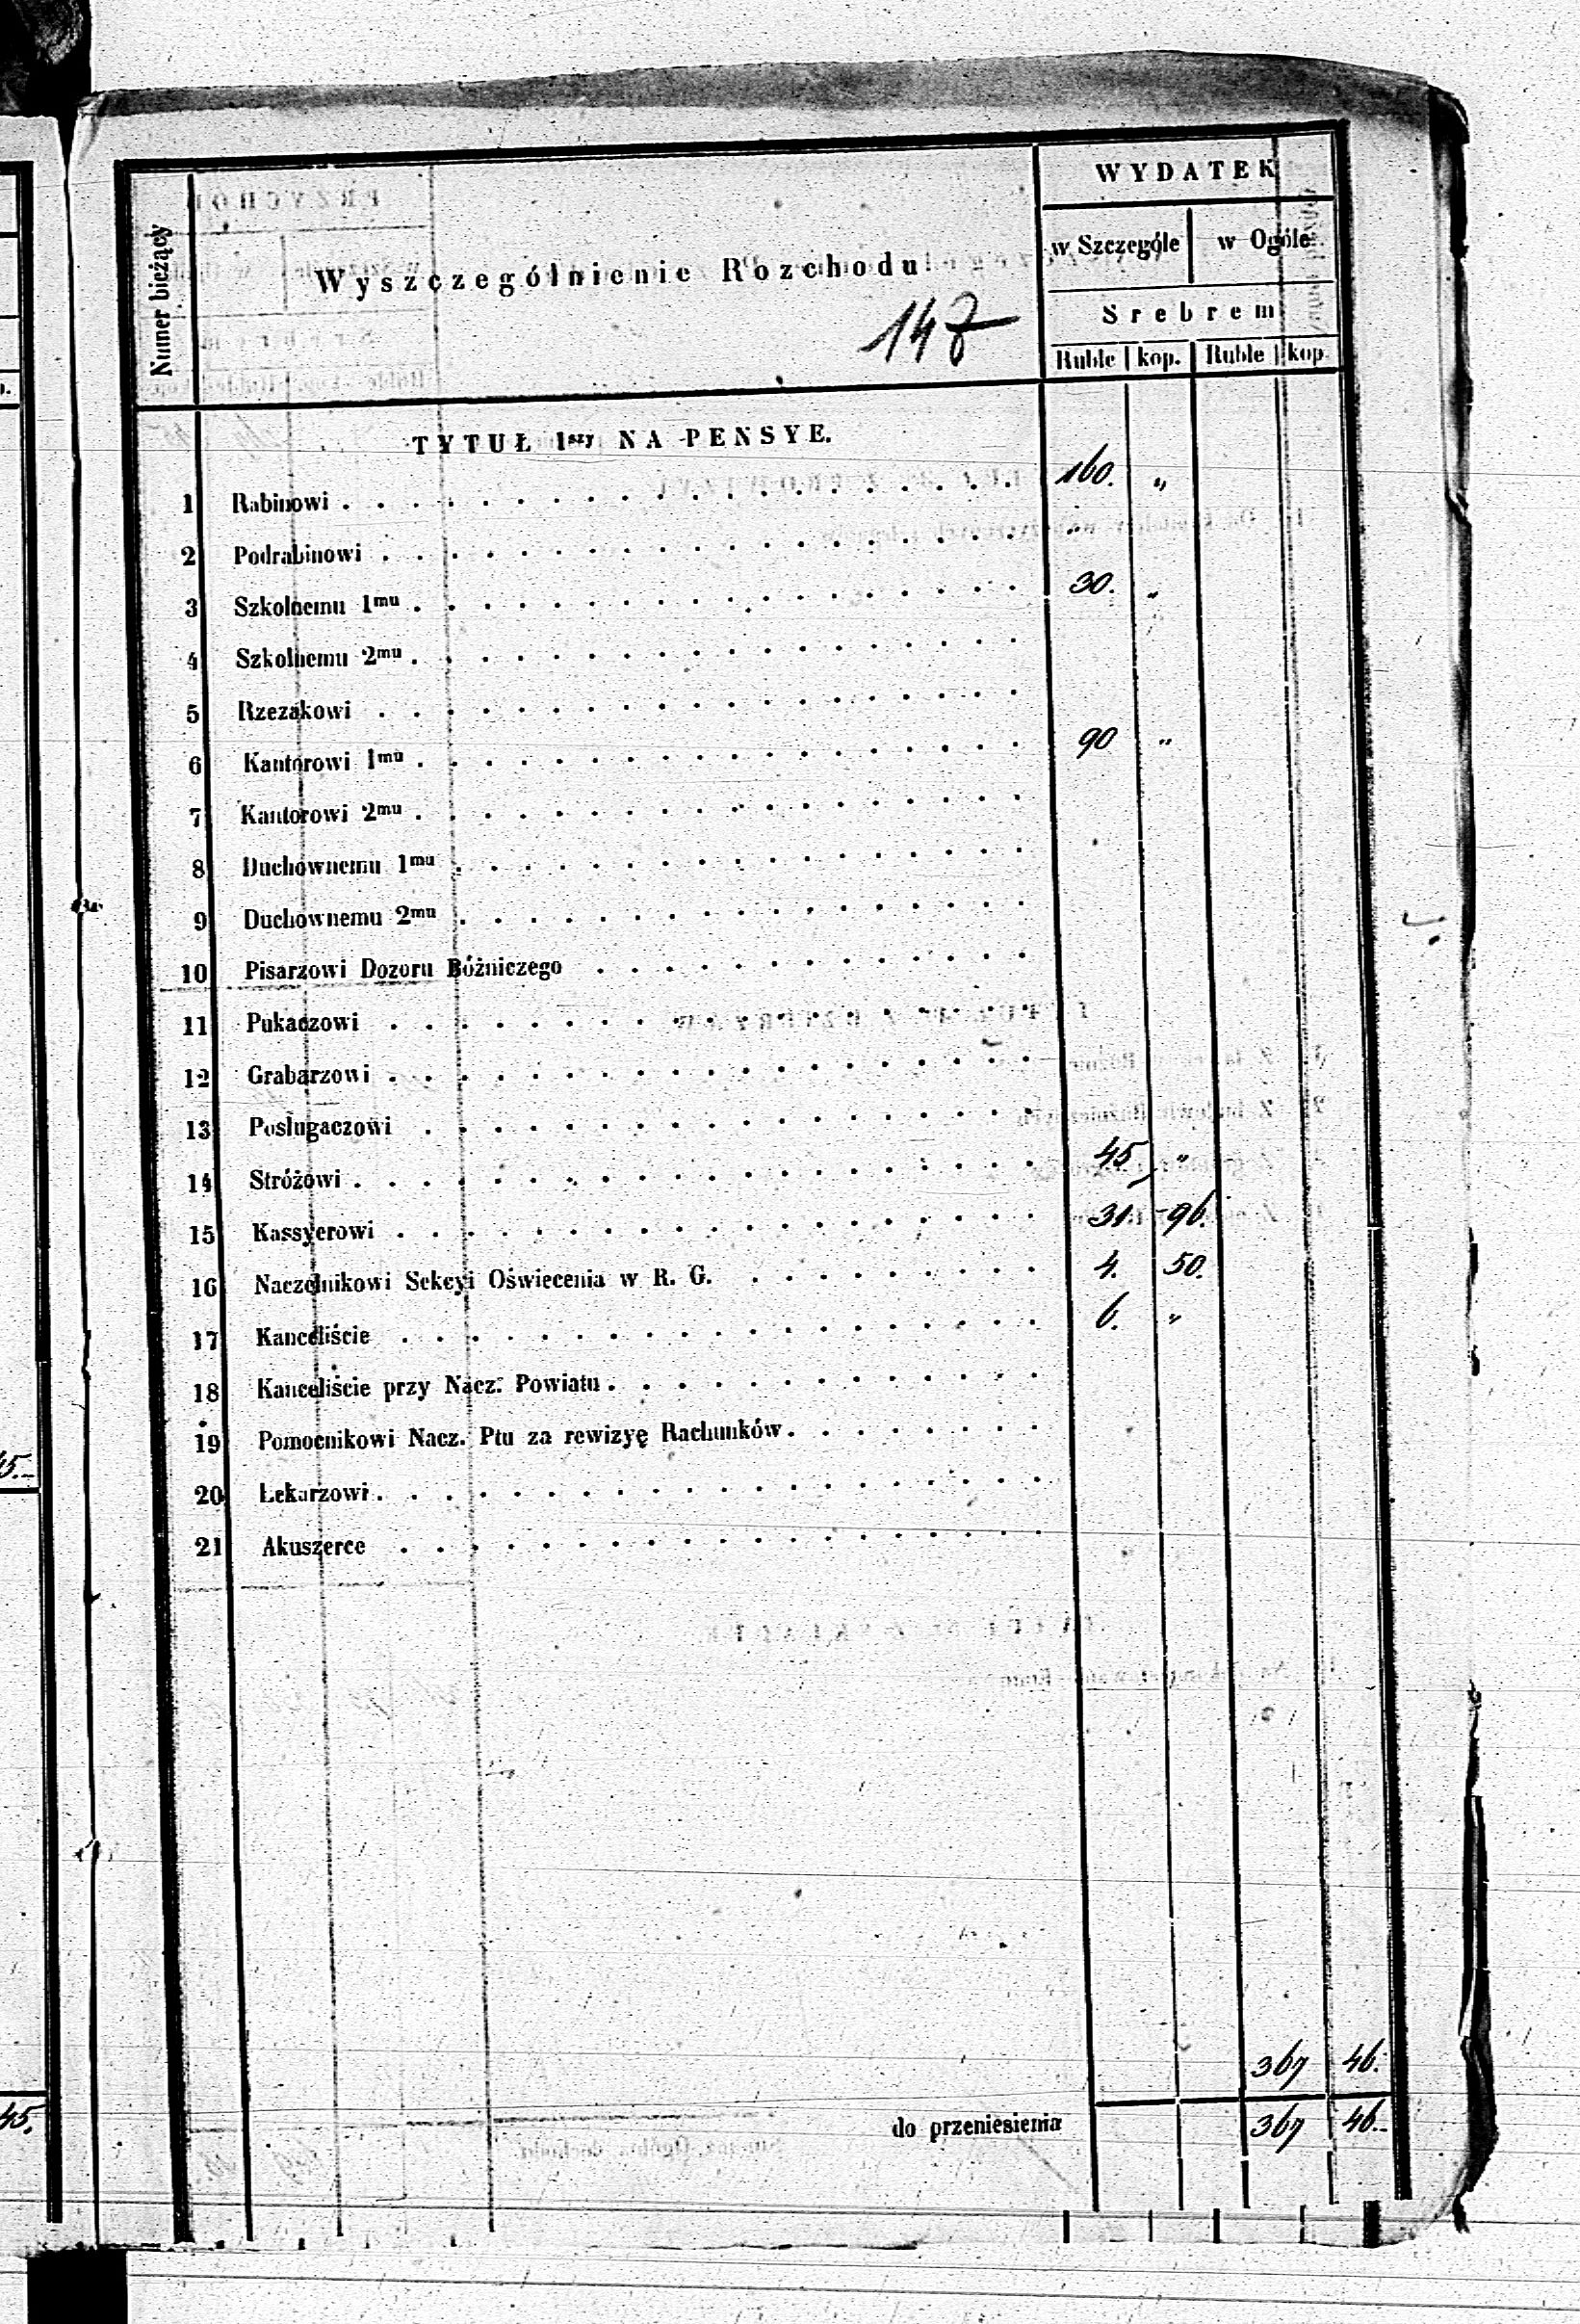 WYDATEK
Numer bieżący
Wyszczególnienie Rozchodu
w Szczególe w Ogóle
Srebrem
147
Ruble kop. Ruble kop.
TYTUŁ 1szy NA PENSYE.
1 Rabinowi 160. „
2 Podrabinowi „
3 Szkolnemu 1mu 30. „
4 Szkolnemu 2mu
5 Rzezakowi
6 Kantorowi 1mu 90 „
7 Kantorowi 2mu
8 Duchownemu 1mu
9 Duchownemu 2mu
10 Pisarzowi Dozoru Bóżniczego
11 Pukaczowi
12 Grabarzowi
13 Posługaczowi
14 Stróżowi 45 „
15 Kassyerowi 31 96.
16 Naczelnikowi Sekcyi Oświecenia w R. G. 4. 50.
17 Kanceliście 6. „
18 Kanceliście przy Nacz. Powiatu
19 Pomocnikowi Nacz. Ptu za rewizyę Rachunków
20 Lekarzowi
21 Akuszerce
367 46.
do przeniesienia 367 46.